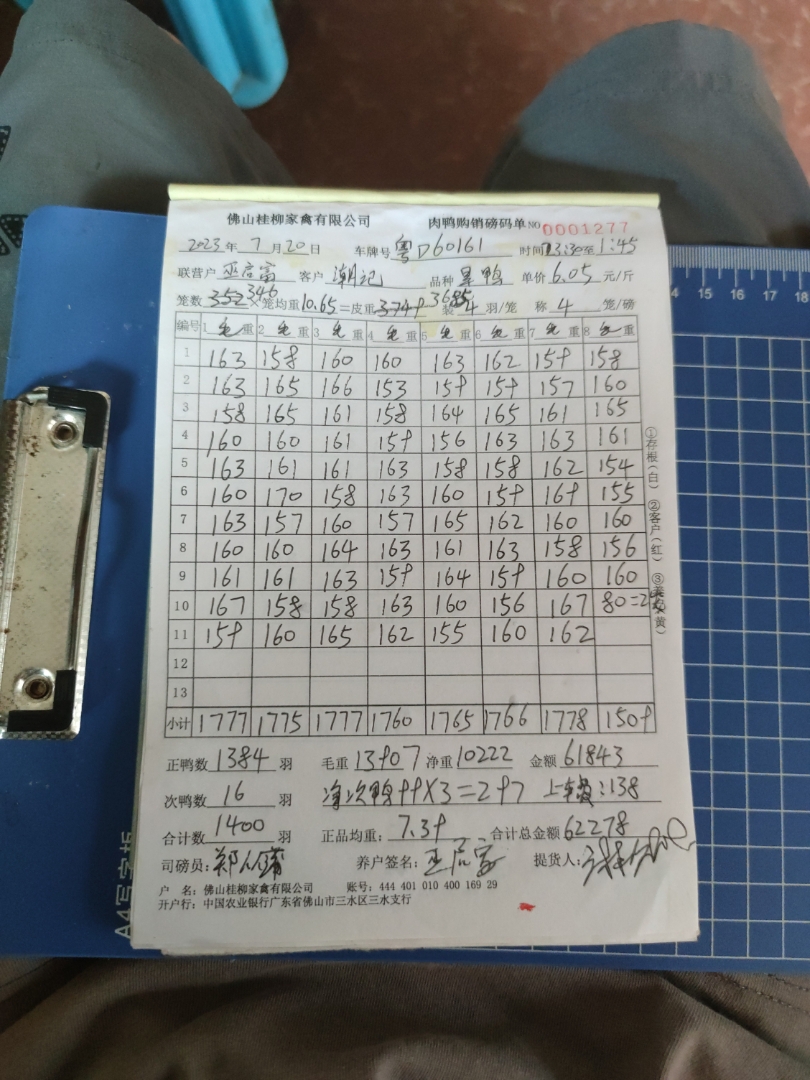 佛山桂柳家禽有限公司 肉鸭购销磅码单 NO 0001277
2023年 7月 20日 车牌号 粤D60161 时间 13:30至1:45
联营户 巫启富 客户 潮记 品种 单价 6.05 元/斤
笼数 352 346 × 笼均重 10.65 = 皮重 3749 3685 装 4 羽/笼 称 4 笼/磅
编号 1 毛重 2 毛重 3 毛重 4 毛重 5 毛重 6 毛重 7 毛重 8 毛重
1 163 158 160 160 163 162 159 158
2 163 165 166 153 159 159 157 160
3 158 165 161 158 164 165 161 165
4 160 160 161 159 156 163 163 161
5 163 161 161 163 158 158 162 154
6 160 170 158 163 160 159 169 155
7 163 157 160 157 165 162 160 160
8 160 160 164 163 161 163 158 156
9 161 161 163 159 164 159 160 160
10 167 158 158 163 160 156 167 80=2
11 159 160 165 162 155 160 162
12
13
小计 1777 1775 1777 1760 1765 1766 1778 1509
正鸭数 1384 羽 毛重 13907 净重 10222 金额 61843
次鸭数 16 羽 净次鸭 99×3=297 上车费:138
合计数 1400 羽 正品均重: 7.39 合计总金额 62278
司磅员: 养户签名: 巫启富 提货人:
户 名: 佛山桂柳家禽有限公司 账号: 444 401 010 400 169 29
开户行: 中国农业银行广东省佛山市三水区三水支行
①存根(白) ②客户(红) ③ 黄)
A4写字板
12 13 14 15 16 17 18